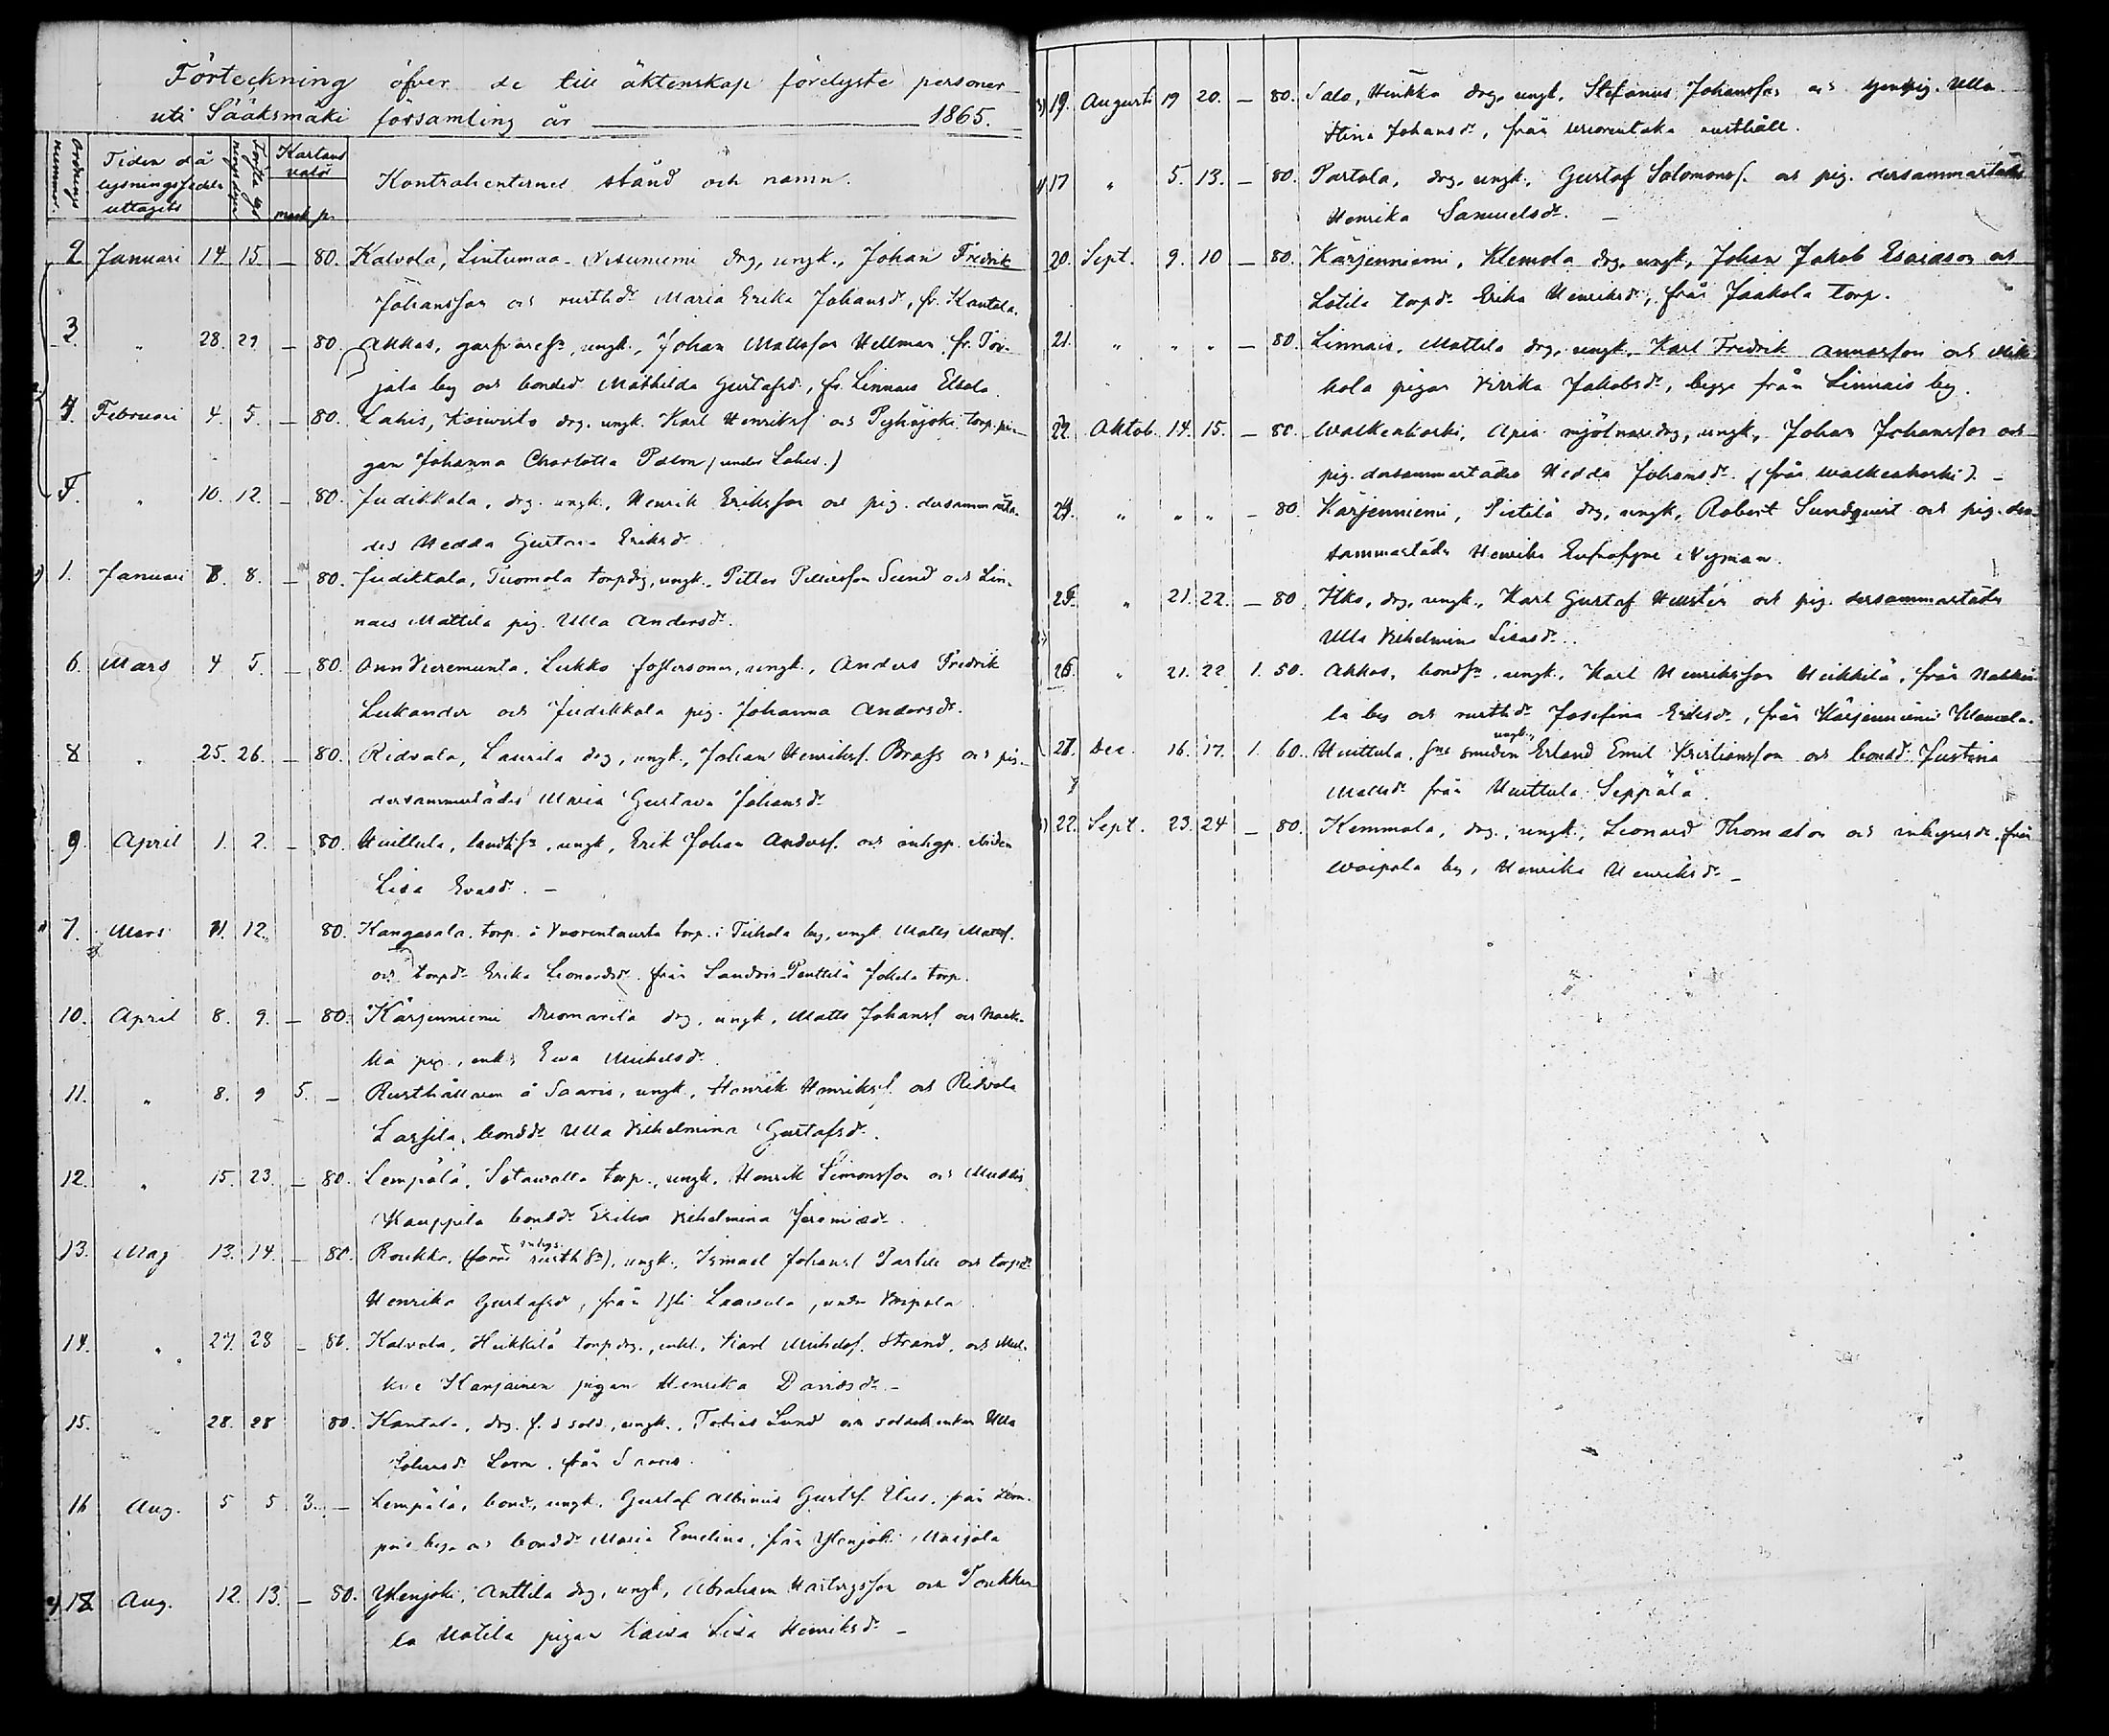 Förteckning öfver de till äktenskap förelyste personer
uti Sääksmäki församling år 1865.
Ordnings nummer. Tiden då lysningssedeln uttagits Kartaus valör mark p. Kontrahenternes stånd och namn.
2 Januari 14. 15. — 80. Kalvola, Lintumaa Niemi drg, ungk., Johan Fredrik
Johansson och rusth.dr Maria Erika Johansdr, fr. Kantala.
3 " 28. 29 — 80. Akkas, garfvare, ungk., Johan Mattsson Hellman, fr. Toi-
jala by och bonded. Mathilda Gustafsd., fr. Linnais Eskola.
4. Februari 4. 5. — 80. Lahis, drg. ungk. Karl Henriksf och torp. pi-
gan Johanna Charlotta Palm (under Lahis.)
5. " 10. 12. — 80. Judikkala, drg. ungk., Henrik Eriksson och pig. dersammasta-
des Hedda Gustava Eriksdr.
1. Januari 8. — 80. Judikkala, Tuomola torpdrg, ungk., Petter Pettersson Sund och Lin-
nais Mattila pig. Ulla Andersdr.
6. Mars 4 5. — 80. Ann Vieremunta, Lukko fostersonen, ungk., Anders Fredrik
Lukander och Judikkala pig. Johanna Andersdr.
8 " 25. 26. — 80. Ridvala, Laurila drg, ungk., Johan Henriksf. Brass och pig.
dersammastädes Maria Gustava Johansdr
9. April 1. 2. — 80. Huittula, ungk, Erik Johan Andersf. och inhysp.
Lisa Evasdr. —
7. Mars 11. 12. 80. Kangasala torp. i Tiihala by, ungk Matts Mattsf.
och torpdr Erika Leonardsdr. från Sandvis Penttilä Jokela torp.
10. April 8. 9. — 80. Kärjenniemi drg, ungk, Matts Johansf och
pig., enk. Eva Michelsdr.
11. " 8. 9 5. — Rusthållaren å Saaris, ungk, Henrik Henriksf. och Ridvala
Lassila, bonddr Ulla Vilhelmina Gustafsdr.
12. " 15. 23. — 80. Lempälä, torp., ungk, Henrik Simonsson och
Kauppila bonddr Erika Vilhelmina Jeremiasdr.
13. Maj 13. 14. — 80. Roukko, (förre inhys. rusth.), ungk., Ismael Johansf Partele och torpdr
Henrika Gustafsd, från Yli Laarsola, under Voipala
14. " 27. 28 — 80. Kalvola, Heikkilä torp.drg., enkl., Karl Michelsf. Strand, och
Karjainen pigan Henrika Davidsdr —
15. " 28. 28 80. Kantala, drg. f. d. sold., ungk., Tobias Lund och soldatenkan Ulla
Johansdr Lorn, från Saaris.
16 Aug. 5 5 3. — Lempälä, bond., ungk. Gustaf Albinus Gustsf. från Lem-
och bonddr Maria Emelina, från Ylenjoki Maijala
18 Aug. 12. 13. — 80. Ylenjoki, Anttila drg, ungk, Abraham och Toukko-
la Uotila pigan Kaisa Lisa Henriksdr —
19. Augusti 19 20. — 80. Salo, drg, ungk, Stefanus Johansson och pig. Ulla
Stina Johansdr, från rusthåll.
17 " 5. 13. — 80. Partola, drg, ungk, Gustaf Solomonsf. och pig. dersammastädes
Henrika Samuelsdr. —
20. Sept. 9. 10 — 80. Kärjenniemi, Klemola drg, ungk, Johan Jakob Esaiasson och
Lotila torpdr Erika Henriksdr, från Jaakola torp.
21. " " " — 80. Linnais, Mattila drg, ungk. Karl Fredrik Annasson och
kola pigan Vivika Jakobsdr, begge från Linnais by.
22. Oktob. 14. 15. — 80. Walkeakoski, Apia mjölnaredrg, ungk, Johan Johansson och
pig. dersammastädes Hedda Johansdr. (från Walkeakoski). —
24. " " " — 80. Kärjenniemi, Pietilä drg, ungk, Robert Sundqvist och pig. der-
sammastädes Henrika Eufrosyne Nyman.
25. " 21. 22. — 80 Itko, drg, ungk, Karl Gustaf Hellstén och pig. dersammastädes
Ulla Vilhelmina Lisasdr.
26. " 21. 22 1. 50. Akkas, bondsn, ungk. Karl Henriksson Heikkilä, från
la by och rusthdr Josefina Eriksdr, från Kärjenniemi Klemola.
27. Dec. 16. 17. 1. 60. Huittula, smeden ungk. Erland Emil Kristiansson och bondd. Justina
Mattsdr från Huittula Seppälä.
22. Sept. 23. 24 — 80. Kemmola, drg, ungk, Leonard Thomasson och inhysesdr. från
Woipala by, Henrika Henriksdr —